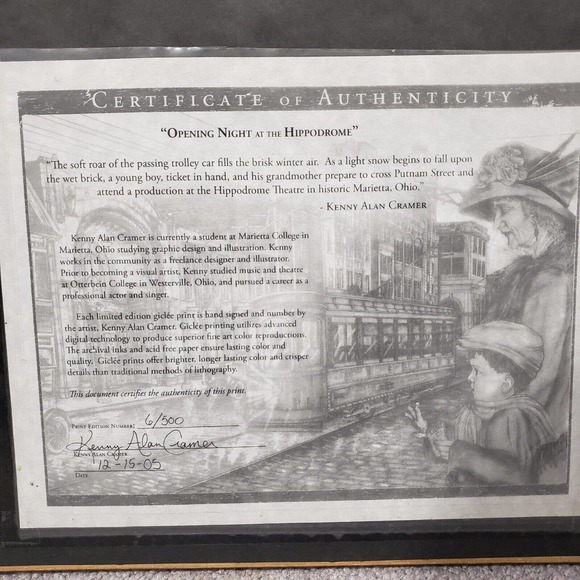 CERTIFICATE OF AUTHENTICITY
"OPENING NIGHT AT THE HIPPODROME"
"The soft roar of the passing trolley car fills the brisk winter air. As a light snow begins to fall upon
the wet brick, a young boy, ticket in hand, and his grandmother prepare to cross Putnam Street and
attend a production at the Hippodrome Theatre in historic Marietta, Ohio."
- KENNY ALAN CRAMER
Kenny Alan Cramer is currently a student at Marietta College in
Marietta, Ohio studying graphic design and illustration. Kenny
works in the community as a freelance designer and illustrator.
Prior to becoming a visual artist, Kenny studied music and theatre
at Otterbein College in Westerville, Ohio, and pursued a career as a
professional actor and singer.
Each limited edition giclée print is hand signed and number by
the artist, Kenny Alan Cramer. Giclée printing utilizes advanced
digital technology to produce superior fine art color reproductions.
The archival inks and acid free paper ensure lasting color and
quality. Giclée prints offer brighter, longer lasting color and crisper
details than traditional methods of lithography.
This document certifies the authenticity of this print.
PRINT EDITION NUMBER: 6/500
Kenny Alan Cramer
KENNY ALAN CRAMER
12-15-05
DATE